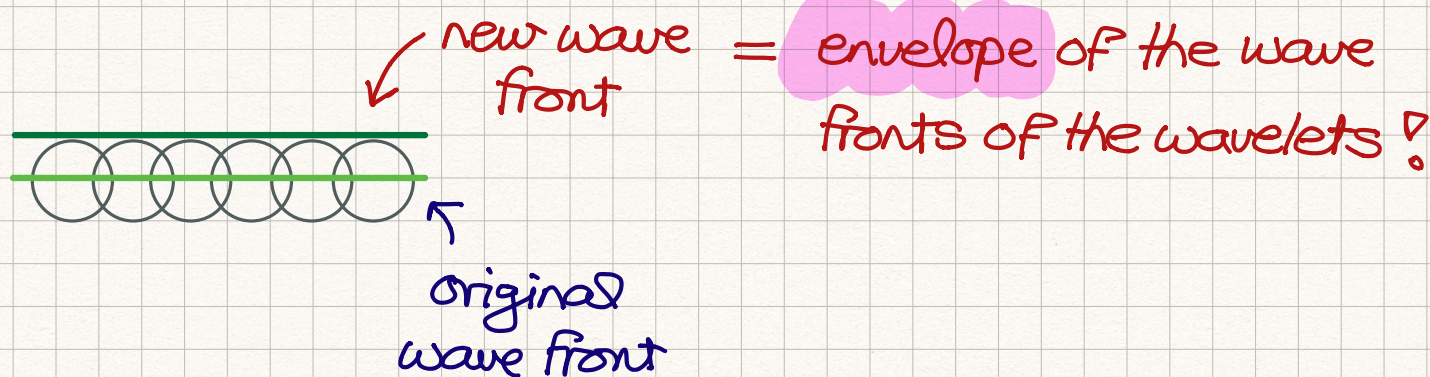 new wave front = envelope of the wave
fronts of the wavelets!
original
wave front